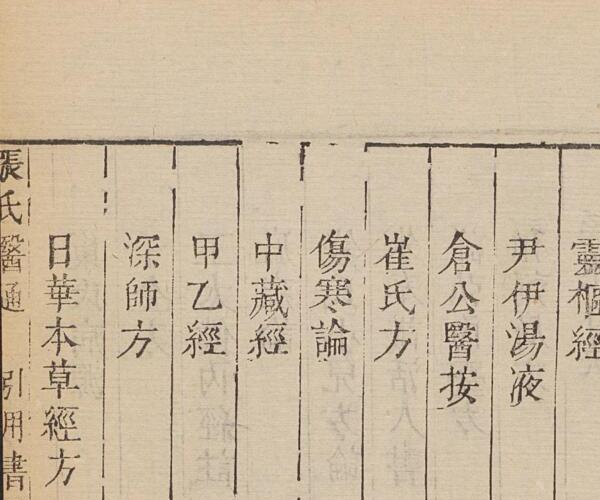 靈樞經
尹伊湯液
倉公醫按
崔氏方
傷寒論
中藏經
甲乙經
深師方
日華本草經方
張氏醫通 引用書